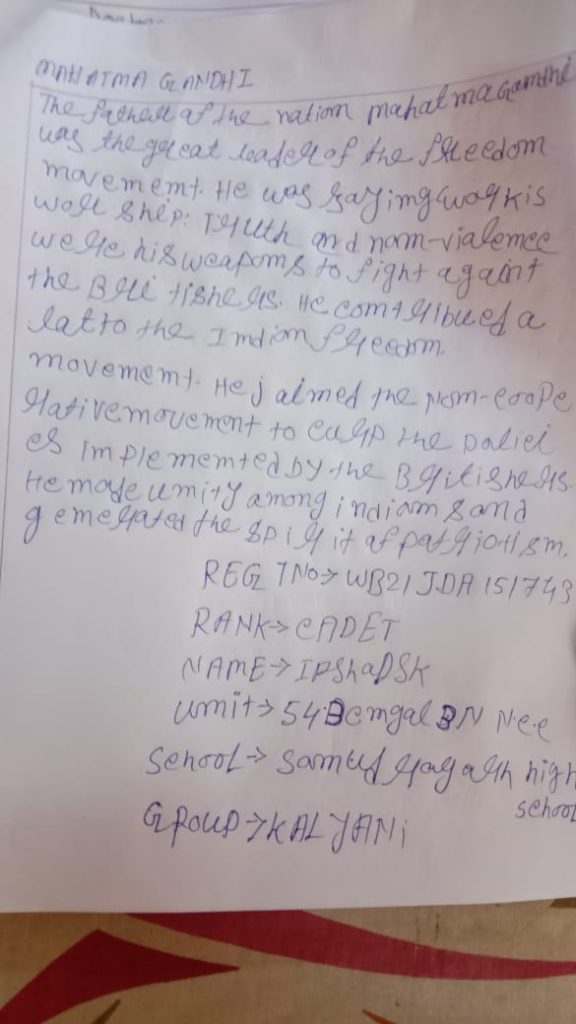 MAHATMA GANDHI
The father of the nation mahatma Gandhi
was the great leader of the freedom
movement. He was saying work is
wor ship. Truth and non-violence
were his weapons to fight againt
the Bri tishers. He contribued a
lot to the Indian freedom
movement. He joined the Non-coope
rative movement to curp the polici
es implemented by the Britishers.
He made unity among indians and
generated the spirit of patriotism.
REG TNO→ WB21JDA151743
RANK→ CADET
NAME→ IPShaD SK
unit→ 54 Bengal BN N.c.c
School→ high
school
GROUP→ KALYANi